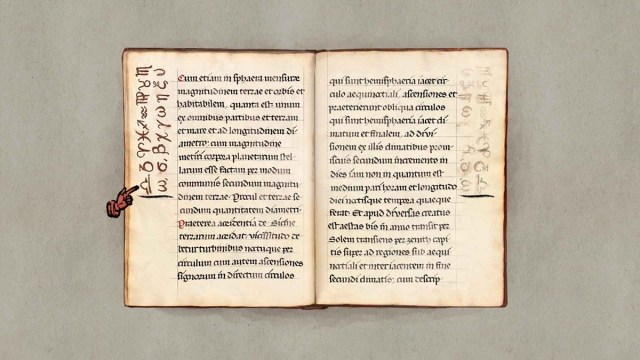 Cum etiam in sphaera mensurae
magnitudinem terrae et orbis et
habitabilem, quanta est unum
ex omnibus partibus et terram
et mare et ad longitudinem di-
ametro, cum magnitudine
metiri corpera planetarum stel-
larum esse factam per modum
communie secundum magnitu-
dinem terrae. Procul et terrae se-
cundum quantitatem diametri.
Praeterea accidentia de
terrarum accidat: vicissitudo de-
tetur turbinibus noctuque per
circulum cum autem ascensiones
signorum in directum circulos
qui sunt hemisphaeria iacet cir-
culo aequinoctiali, ascensiones et
praetereunt obliqua circulos
qui sunt hemisphaeria iacet di-
matum et finalem, ad
sionem ex illis climatibus prom-
issus secundum incremento in
dies iam non in quantum est
medium par horam et longitudo
diei noctisque tempora quaeque
ferat. Et apud diversas creatus
est aestas bis in anno transit per
Solem transiens per zenith capi-
tis super ad regiones sub aequi-
noctiali et inter iacentem in fine
secundi climatis; cum descrip-